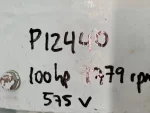 P12440
100hp 1779 rpm
575 V